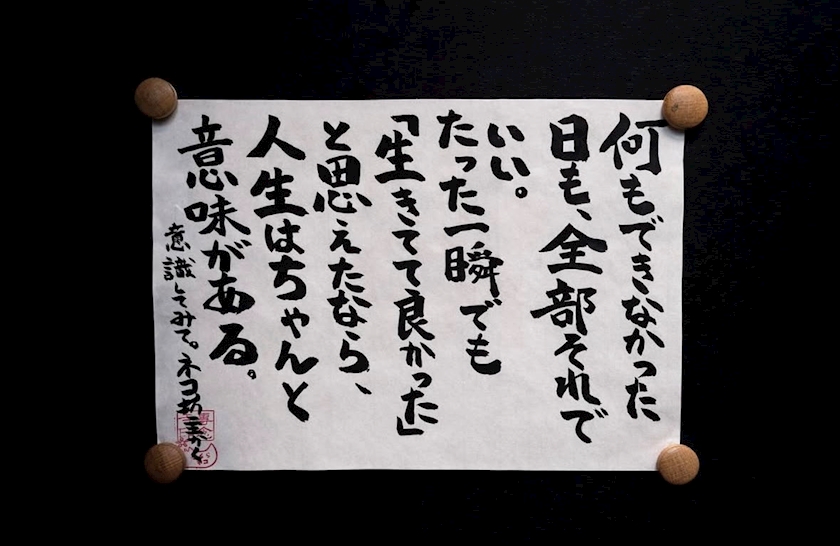 何もできなかった
日も、全部それで
いい。
たった一瞬でも
「生きてて良かった」
と思えたなら、
人生はちゃんと
意味がある。
意識してみて。ネコ坊主